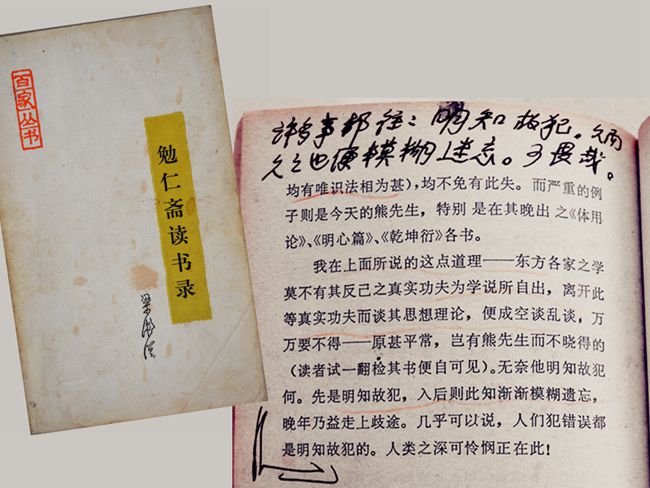 百家丛书
勉仁斋读书录
梁漱溟
许多事都往々明知故犯。久而
久之也便模糊迷忘。可畏哉。
均有唯识法相为甚），均不免有此失。而严重的例
子则是今天的熊先生，特别是在其晚出之《体用
论》、《明心篇》、《乾坤衍》各书。
我在上面所说的这点道理——东方各家之学
莫不有其反己之真实功夫为学说所自出，离开此
等真实功夫而谈其思想理论，便成空谈乱谈，万
万要不得——原甚平常，岂有熊先生而不晓得的
（读者试一翻检其书便自可见）。无奈他明知故犯
何。先是明知故犯，入后则此知渐渐模糊遗忘，
晚年乃益走上歧途。几乎可以说，人们犯错误都
是明知故犯的。人类之深可怜悯正在此！